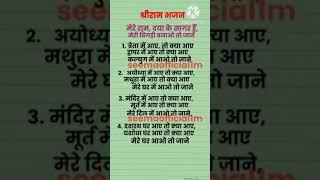 श्रीराम भजन
मेरे राम, दया के सागर हैं,
मेरी बिगड़ी बनाओ तो जाने
1. त्रेता में आए, तो क्या आए
द्वापर में आए तो क्या आए
कलयुग में आओ तो जाने
2. अयोध्या में आए तो क्या आए,
मथुरा में आए तो क्या आए
मेरे घर में आओ तो जाने
3. मंदिर में आए तो क्या आए,
मूर्त में आए तो क्या आए
मेरे दिल में आओ तो जाने
seemaofficial1m
4. दशरथ घर आए तो क्या आए,
यशोधा घर आए तो क्या आए
मेरे घर आओ तो जाने
2. अयोध्या
मथुरा में
मेरे
seemaofficial1m
3. मंदिर
मूर्त में
मेरे दि
आए,
आए
जाने
आए,
आए
जाने